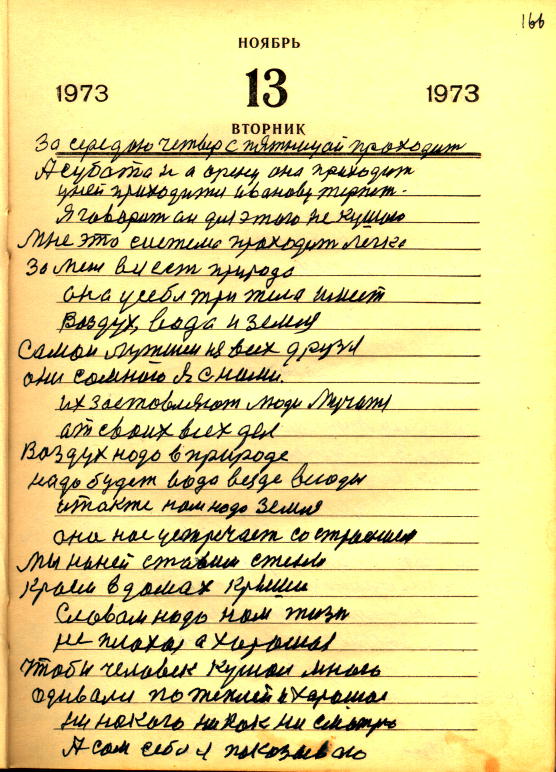 166
НОЯБРЬ
1973 13 1973
ВТОРНИК
За середою четвер с пятницай проходит
А субата и а она приходит
уней приходити иванову терпет.
Я говорит ан для этого не кушаю
Мне это система проходит легко
За меш природа
она усебя три тела имеет
Воздух, вода и земля
самаи лутшии для всех друзя
они сомного я снами.
их заставляют люди мучатя
ат своих всех дел
Воздух надо в природе
надо будет вода везде всюды
итакже нам надо земля
она нас устречает со страшием
Мы наней ставим стены
краем в домах крыши
Словам надо нам жизн
не плохая а харошая
Чтоби человек кушал многа
одивали по теплей и харошое
ни накого никак ни сматря
А сам себя я показываю